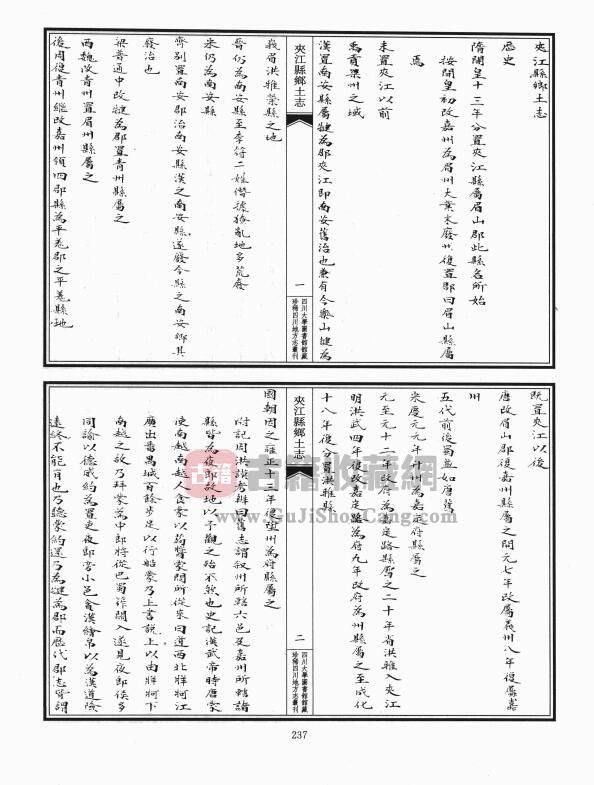 夾江縣鄉土志
歷史
隋開皇十三年分置夾江縣屬眉山郡此縣名所始
按開皇初改嘉州為眉州大業末廢州復置郡曰眉山縣屬
焉
未置夾江以前
禹貢梁州之域
漢置南安縣屬犍為郡夾江即南安舊治也兼有今樂山犍為
夾江縣鄉土志
一
四川大學圖書館館藏
珍稀四川地方志叢刊
峩眉洪雅榮縣之地
晉仍為南安縣至李符二姓僭據獠亂地多荒廢
宋仍為南安縣
齊別置南安郡治南安縣漢之南安縣遂廢今縣之南安鄉其
廢治也
梁普通中改犍為郡置青州縣屬之
西魏改青州置眉州縣屬之
後周復青州繼改嘉州領四郡縣為平羌郡之平羌縣地
既置夾江以後
唐改眉山郡復嘉州縣屬之開元七年改屬義州八年復屬嘉
州
五代前後蜀並如唐舊
宋慶元元年升州為嘉定府縣屬之
元至元十二年改府為嘉定路縣屬之二十年省洪雅入夾江
明洪武四年復改嘉定路為府九年改府為州縣屬之至成化
十八年復分置洪雅縣
夾江縣鄉土志
二
四川大學圖書館館藏
珍稀四川地方志叢刊
國朝因之雍正十三年復陞州為府縣屬之
附記周洪謨考辨曰舊志謂叙州所轄六邑及嘉州所轄諸
縣皆為夜郎故地以予觀之殆不然也史記漢武帝時唐蒙
使南越南越人食蒙以蒟醬蒙問所從來曰道西北牂牁江
廣出番禺城百餘步足以行船蒙乃上書説上以由牂牁下
南越之故乃拜蒙為中郎將從巴蜀筰關入遂見夜郎侯多
同諭以德威約為置吏夜郎旁小邑貪漢繒帛以為漢道險
遠終不能有也乃聽蒙約還乃為犍為郡而歷代郡志皆謂
古籍收藏網
www.GuJiShouCang.com
237